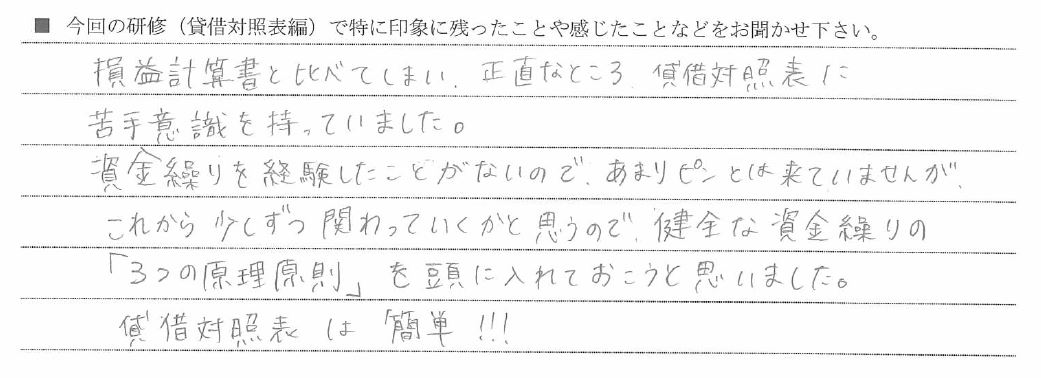 ■ 今回の研修（貸借対照表編）で特に印象に残ったことや感じたことなどをお聞かせ下さい。
損益計算書と比べてしまい、正直なところ、貸借対照表に
苦手意識を持っていました。
資金繰りを経験したことがないので、あまりピンとは来ていませんが、
これから少しずつ関わっていくかと思うので、健全な資金繰りの
「3つの原理原則」を頭に入れておこうと思いました。
貸借対照表は簡単!!!